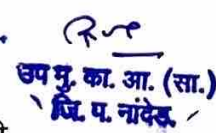 उप मु. का. आ. (सा.)
जि. प. नांदेड.